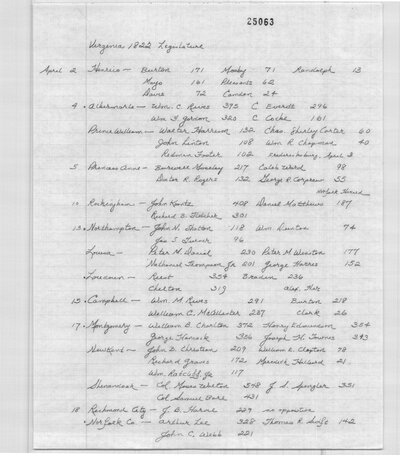 25063
Virginia 1822 Legislature
April 2 Henrico - Burton 171 Mosby 71 Randolph 13
Mayo 161 Pleasants 62
Davis 72 Camdon 24
4 Albermarle - Wm. C. Rives 375 C Everett 296
Wm F Gordon 320 C Cocke 161
Prince William - Walter Harrison 132 Chas. Shirley Carter 60
John Linton 108 Wm R Chapman 40
Redmon Foster 102 Fredericksburg, April 3
5 Princess Anne - Burwell Moseley 217 Caleb Ward 98
Dr R. Rogers 132 George R. Corprew 55
Norfolk Herald
John Kontz 408 Daniel Matthews 187
Richard B. Fletcher 301
13 Northampton - John N. Stratton 118 Wm Dunton 74
Jas S. Turner 96
Louisa - Peter M. Daniel 230 Peter M Winston 177
Nathaniel Thompson Jr 201 George Harris 152
Loudoun - 354 Braden 236
Chelton 313 Alex.
15 Campbell - Wm M Rives 291 Burton 218
William C McAllister 287 Clark 26
17 Montgomery - William B. Charlton 372 Henry Edmundson 354
George Hancock 356 Joseph H. Townes 343
New Kent - John D. Christian 209 William E. Clopton 78
Richard Graves 172 Meredith Hilliard 21
Wm. Ratcliff Jr 117
Shenandoah - Col. Moses Walton 548 J S. Spengler 351
Col Samuel Bare 431
18 Richmond City - J. B. Harvie 229 no opposition
Norfolk Co - Arthur Lee 328 Thomas R. Swift 142
John C. Webb 221